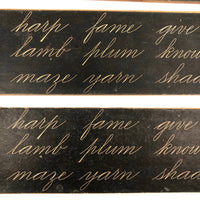 harp fame give
lamb plum know
maze yarn shad
harp fame give
lamb plum know
maze yarn shad